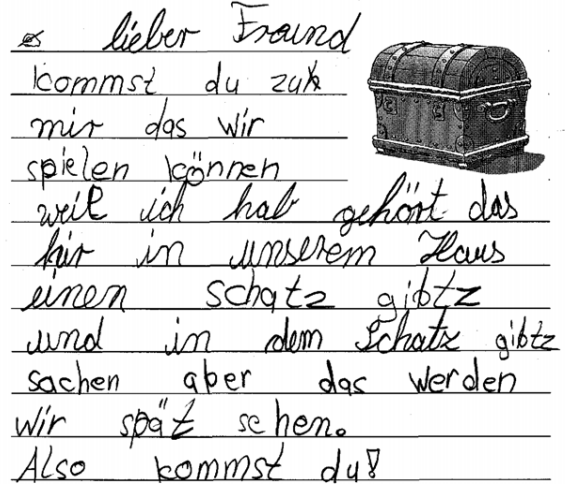 lieber Freund
kommst du zuk
mir das wir
spielen können
weil ich hab gehört das
hir in unserem Haus
einen schatz gibtz
und in dem Schatz gibtz
sachen aber das werden
wir spät sehen.
Also kommst du?